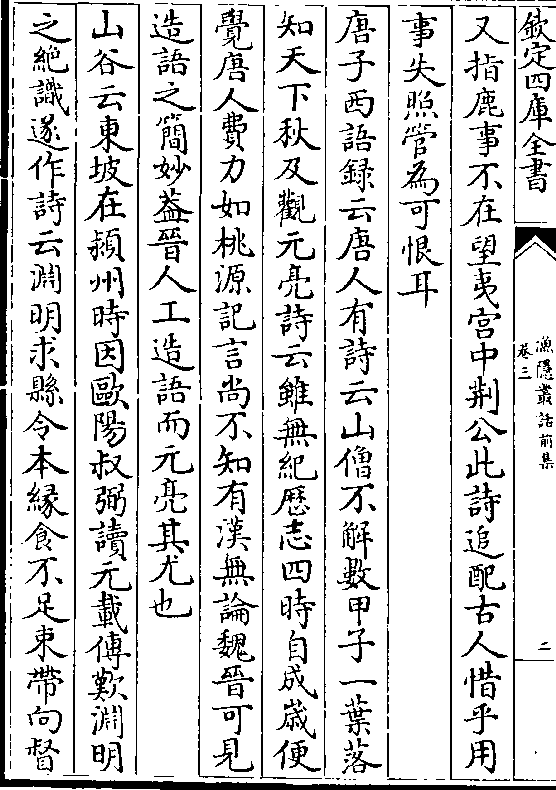 欽定四庫全書
漁隱叢話前集
卷三
二
又指鹿事不在望夷宮中荆公此詩追配古人惜乎用
事失照管為可恨耳
唐子西語録云唐人有詩云山僧不解數甲子一葉落
知天下秋及觀元亮詩云雖無紀歴志四時自成嵗便
覺唐人費力如桃源記言尚不知有漢無論魏晉可見
造語之簡妙葢晉人工造語而元亮其尤也
山谷云東坡在頴州時因歐陽叔弼讀元載傳歎淵明
之絶識遂作詩云淵明求縣令本緣食不足束帶向督